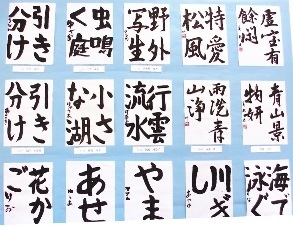 虚室有
餘閒
特愛
松風
野外
写生
虫鳴
く庭
引き
分け
青山景
物妍
雨洗青
山浄
行雲
流水
小さ
な湖
引き
分け
海で
泳ぐ
川ぎ
し
やま
あせ
花か
ご